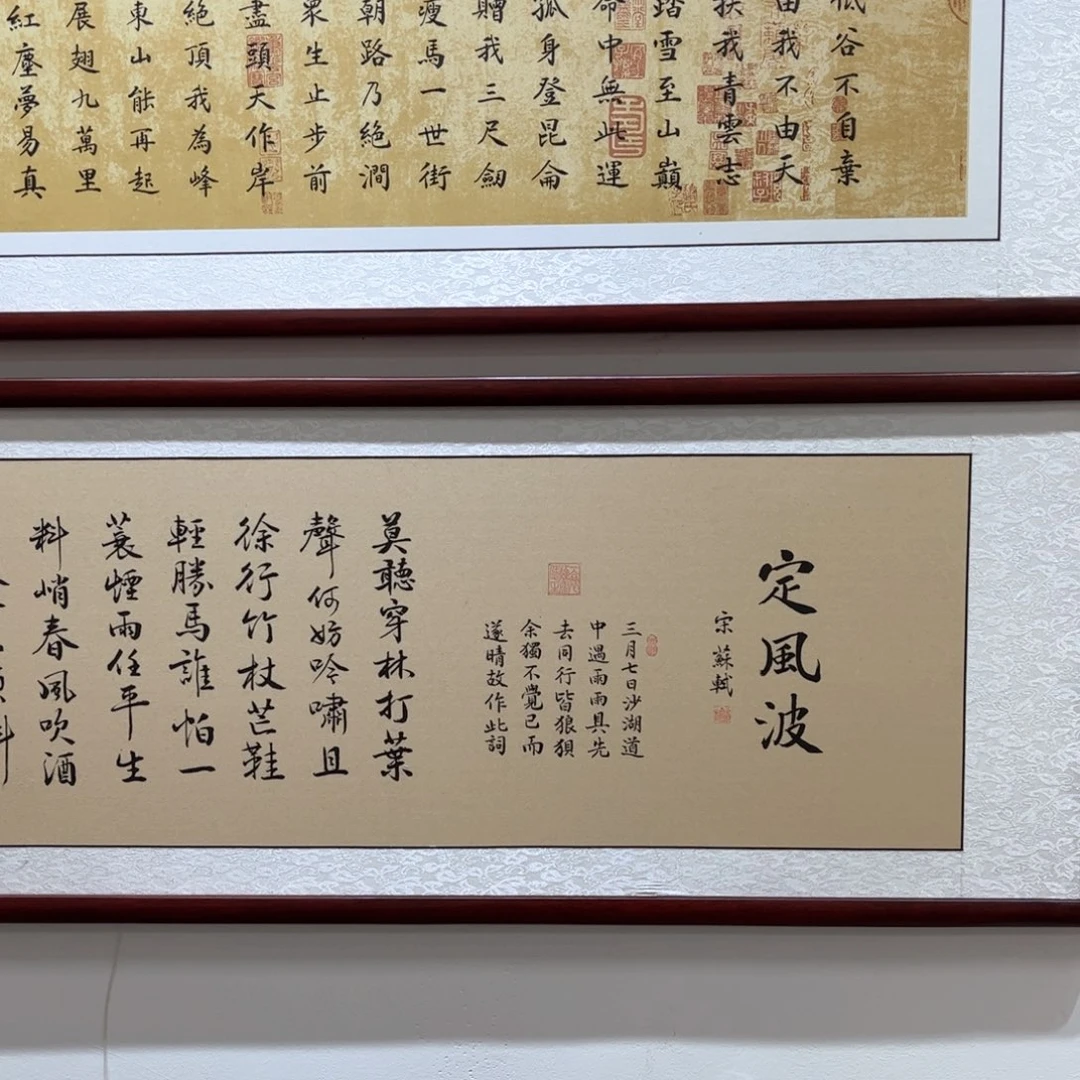 低谷不自棄
由我不由天
扶我青雲志
踏雪至山巔
命中無此運
孤身登昆侖
贈我三尺劍
瘦馬一世街
朝路乃絕澗
眾生止步前
盡頭天作岸
絕頂我為峰
東山能再起
展翅九萬里
紅塵夢易真
定風波
宋 蘇軾
三月七日沙湖道
中遇雨雨具先
去同行皆狼狽
余獨不覺已而
遂晴故作此詞
莫聽穿林打葉
聲何妨吟嘯且
徐行竹杖芒鞋
輕勝馬誰怕一
蓑煙雨任平生
料峭春風吹酒